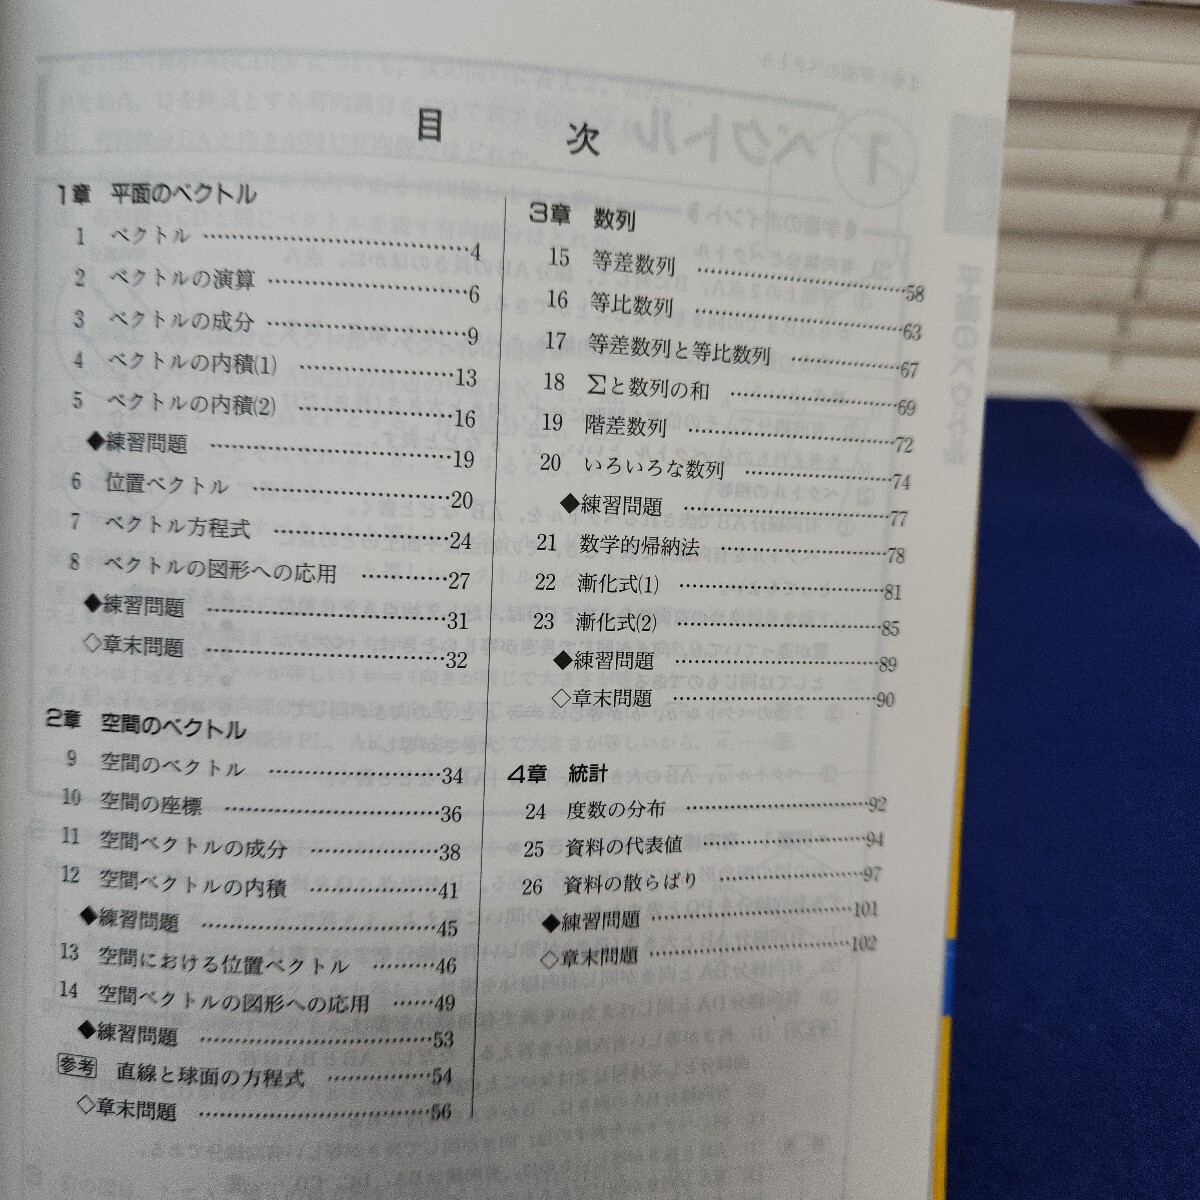 目次
1章 平面のベクトル
1 ベクトル ……………………………4
2 ベクトルの演算 ……………………6
3 ベクトルの成分 ……………………9
4 ベクトルの内積(1) …………………13
5 ベクトルの内積(2) …………………16
◆練習問題 …………………………19
6 位置ベクトル ……………………20
7 ベクトル方程式 …………………24
8 ベクトルの図形への応用 …………27
◆練習問題 …………………………31
◇章末問題 …………………………32
2章 空間のベクトル
9 空間のベクトル …………………34
10 空間の座標 ………………………36
11 空間ベクトルの成分 ……………38
12 空間ベクトルの内積 ……………41
◆練習問題 …………………………45
13 空間における位置ベクトル ………46
14 空間ベクトルの図形への応用 ……49
◆練習問題 …………………………53
参考 直線と球面の方程式 ……………54
◇章末問題 …………………………56
3章 数列
15 等差数列 …………………………58
16 等比数列 …………………………63
17 等差数列と等比数列 ……………67
18 Σと数列の和 ……………………69
19 階差数列 …………………………72
20 いろいろな数列 …………………74
◆練習問題 …………………………77
21 数学的帰納法 ……………………78
22 漸化式(1) …………………………81
23 漸化式(2) …………………………85
◆練習問題 …………………………89
◇章末問題 …………………………90
4章 統計
24 度数の分布 ………………………92
25 資料の代表値 ……………………94
26 資料の散らばり …………………97
◆練習問題 …………………………101
◇章末問題 …………………………102